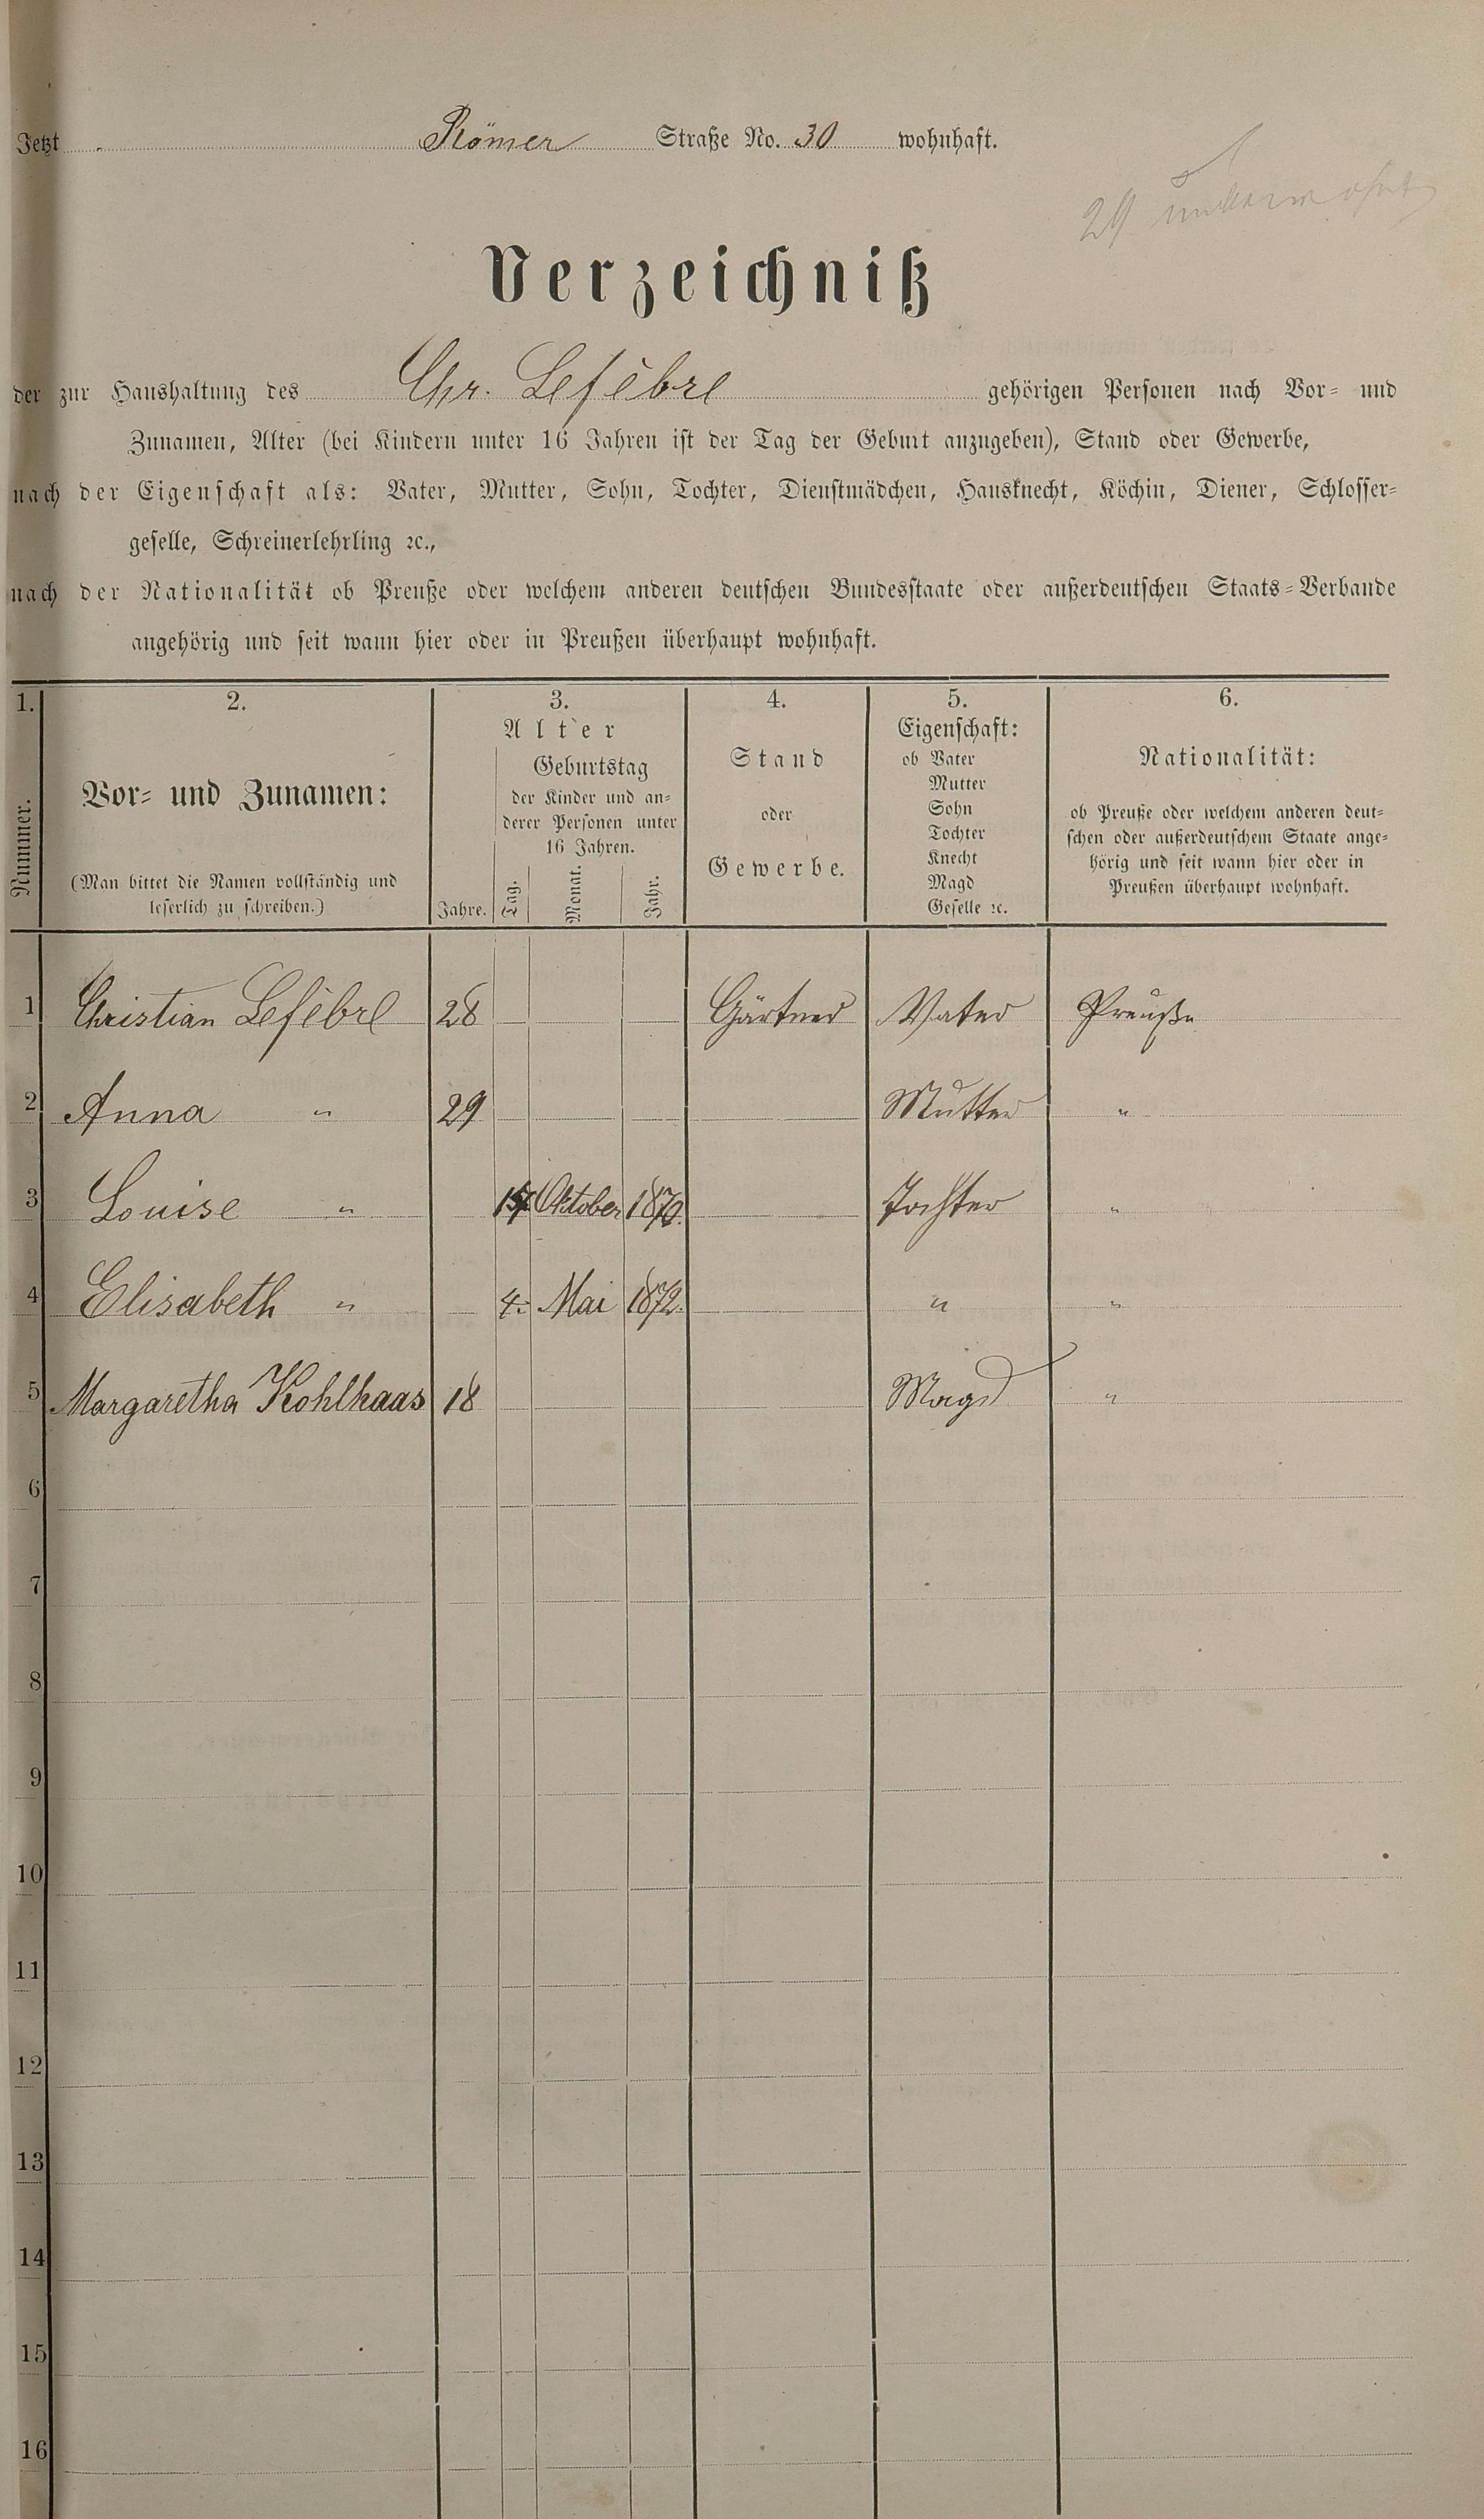 Jetzt Römer Straße No. 30 wohnhaft.
29
Verzeichniß
der zur Haushaltung des Chr. Lefèbre gehörigen Personen nach Vor- und
Zunamen, Alter (bei Kindern unter 16 Jahren ist der Tag der Geburt anzugeben), Stand oder Gewerbe,
nach der Eigenschaft als: Vater, Mutter, Sohn, Tochter, Dienstmädchen, Hausknecht, Köchin, Diener, Schlosser-
geselle, Schreinerlehrling ꝛc.,
nach der Nationalität ob Preuße oder welchem anderen deutschen Bundesstaate oder außerdeutschen Staats-Verbande
angehörig und seit wann hier oder in Preußen überhaupt wohnhaft.
1. 2. 3. 4. 5. 6.
Nummer.
Vor- und Zunamen:
(Man bittet die Namen vollständig und
leserlich zu schreiben.)
Alter
Jahre.
Geburtstag
der Kinder und an-
derer Personen unter
16 Jahren.
Tag. Monat. Jahr.
Stand
oder
Gewerbe.
Eigenschaft:
ob Vater
Mutter
Sohn
Tochter
Knecht
Magd
Geselle ꝛc.
Nationalität:
ob Preuße oder welchem anderen deut-
schen oder außerdeutschem Staate ange-
hörig und seit wann hier oder in
Preußen überhaupt wohnhaft.
1 Christian Lefèbre 28 Gärtner Vater Preuße
2 Anna " 29 Mutter "
3 Louise " Oktober 1870. Tochter "
4 Elisabeth " 4. Mai 1872. " "
5 Margaretha Kohlhaas 18 Magd "
6
7
8
9
10
11
12
13
14
15
16